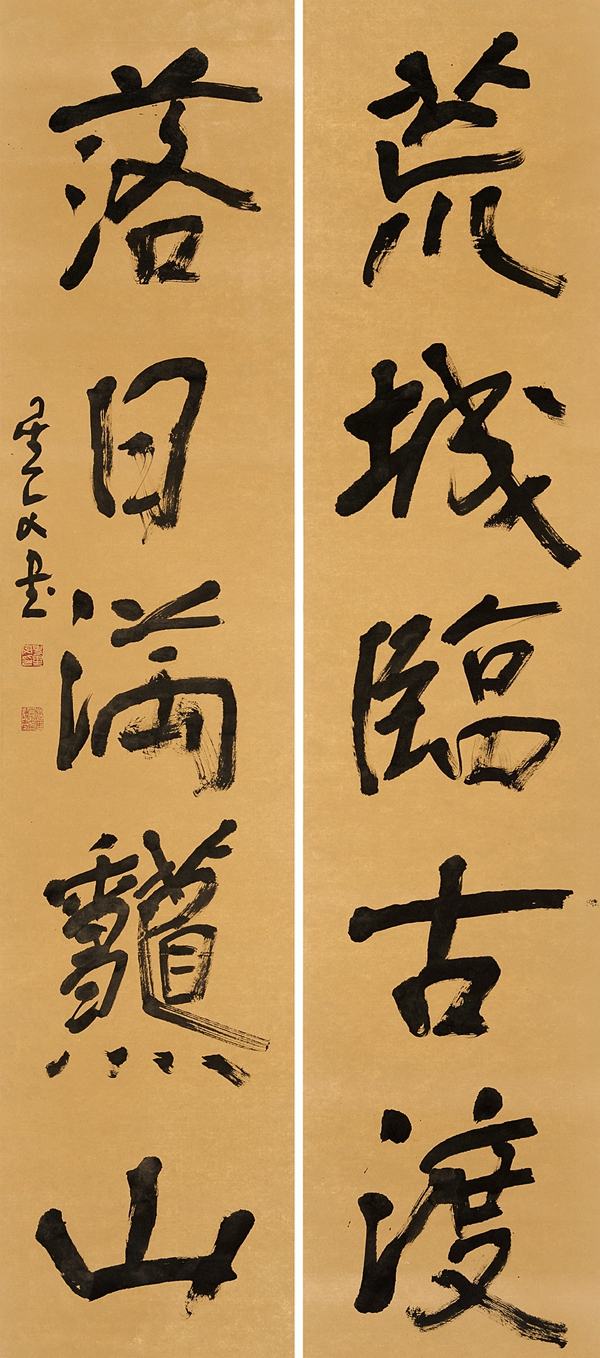 荒城臨古渡
落日滿𥤛山
書